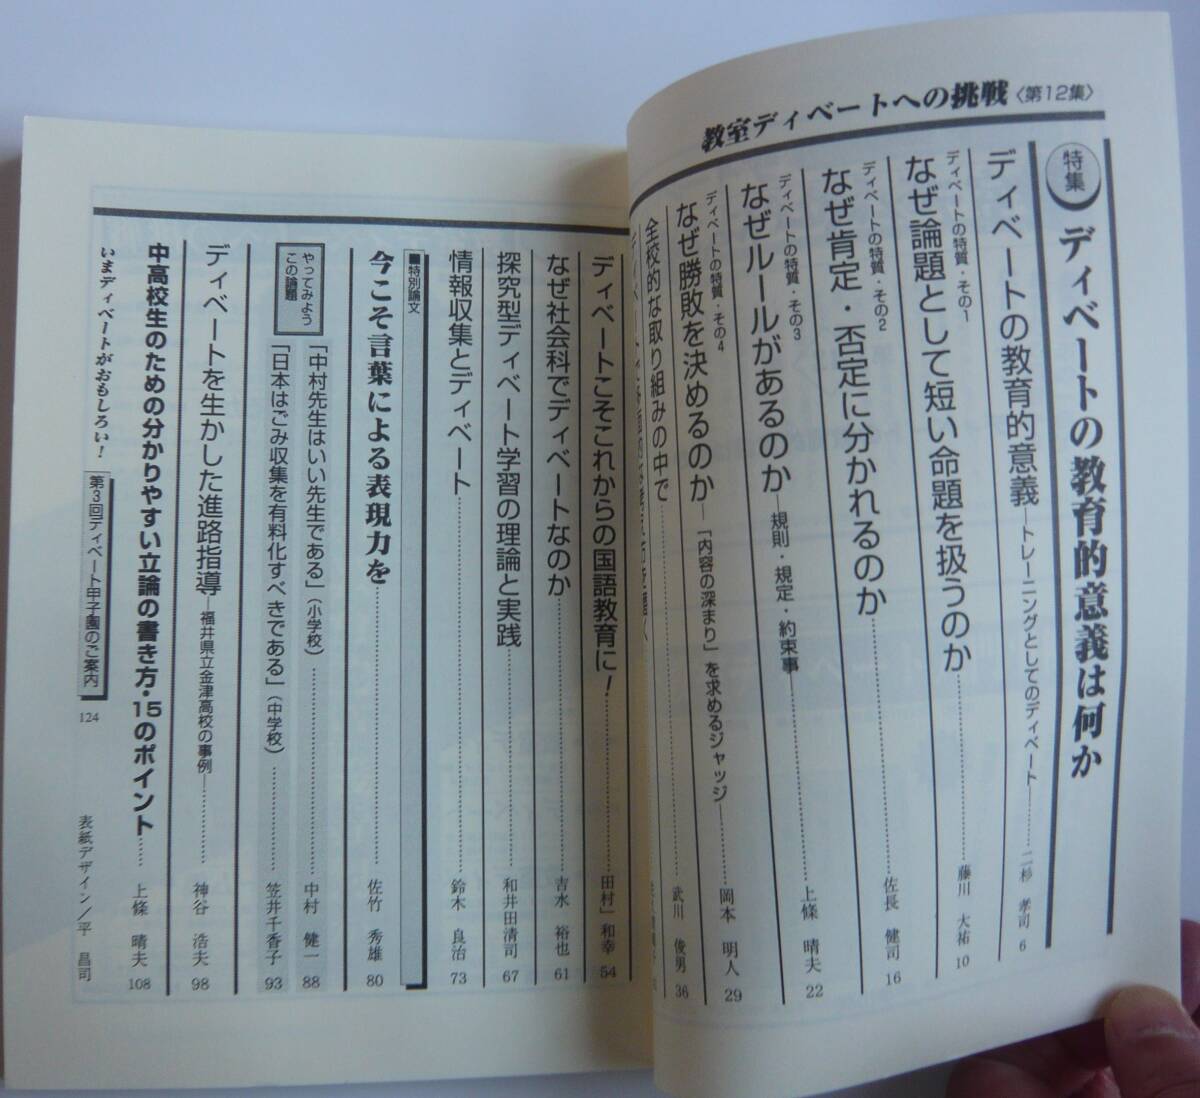 教室ディベートへの挑戦〈第12集〉
特集 ディベートの教育的意義は何か
ディベートの教育的意義―トレーニングとしてのディベート― 二杉 孝司 6
ディベートの特質・その1
なぜ論題として短い命題を扱うのか 藤川 大祐 10
ディベートの特質・その2
なぜ肯定・否定に分かれるのか 佐長 健司 16
ディベートの特質・その3
なぜルールがあるのか―規則・規定・約束事 上條 晴夫 22
ディベートの特質・その4
なぜ勝敗を決めるのか―「内容の深まり」を求めるジャッジ― 岡本 明人 29
全校的な取り組みの中で 武川 俊男 36
ディベートこそこれからの国語教育に! 田村 和幸 54
なぜ社会科でディベートなのか 吉水 裕也 61
探究型ディベート学習の理論と実践 和井田清司 67
情報収集とディベート 鈴木 良治 73
■特別論文
今こそ言葉による表現力を 佐竹 秀雄 80
やってみよう
この論題
「中村先生はいい先生である」(小学校) 中村 健一 88
「日本はごみ収集を有料化すべきである」(中学校) 笠井千香子 93
ディベートを生かした進路指導―福井県立金津高校の事例― 神谷 浩夫 98
中高校生のための分かりやすい立論の書き方・15のポイント 上條 晴夫 108
いまディベートがおもしろい! 第3回ディベート甲子園のご案内 124
表紙デザイン/平 昌司